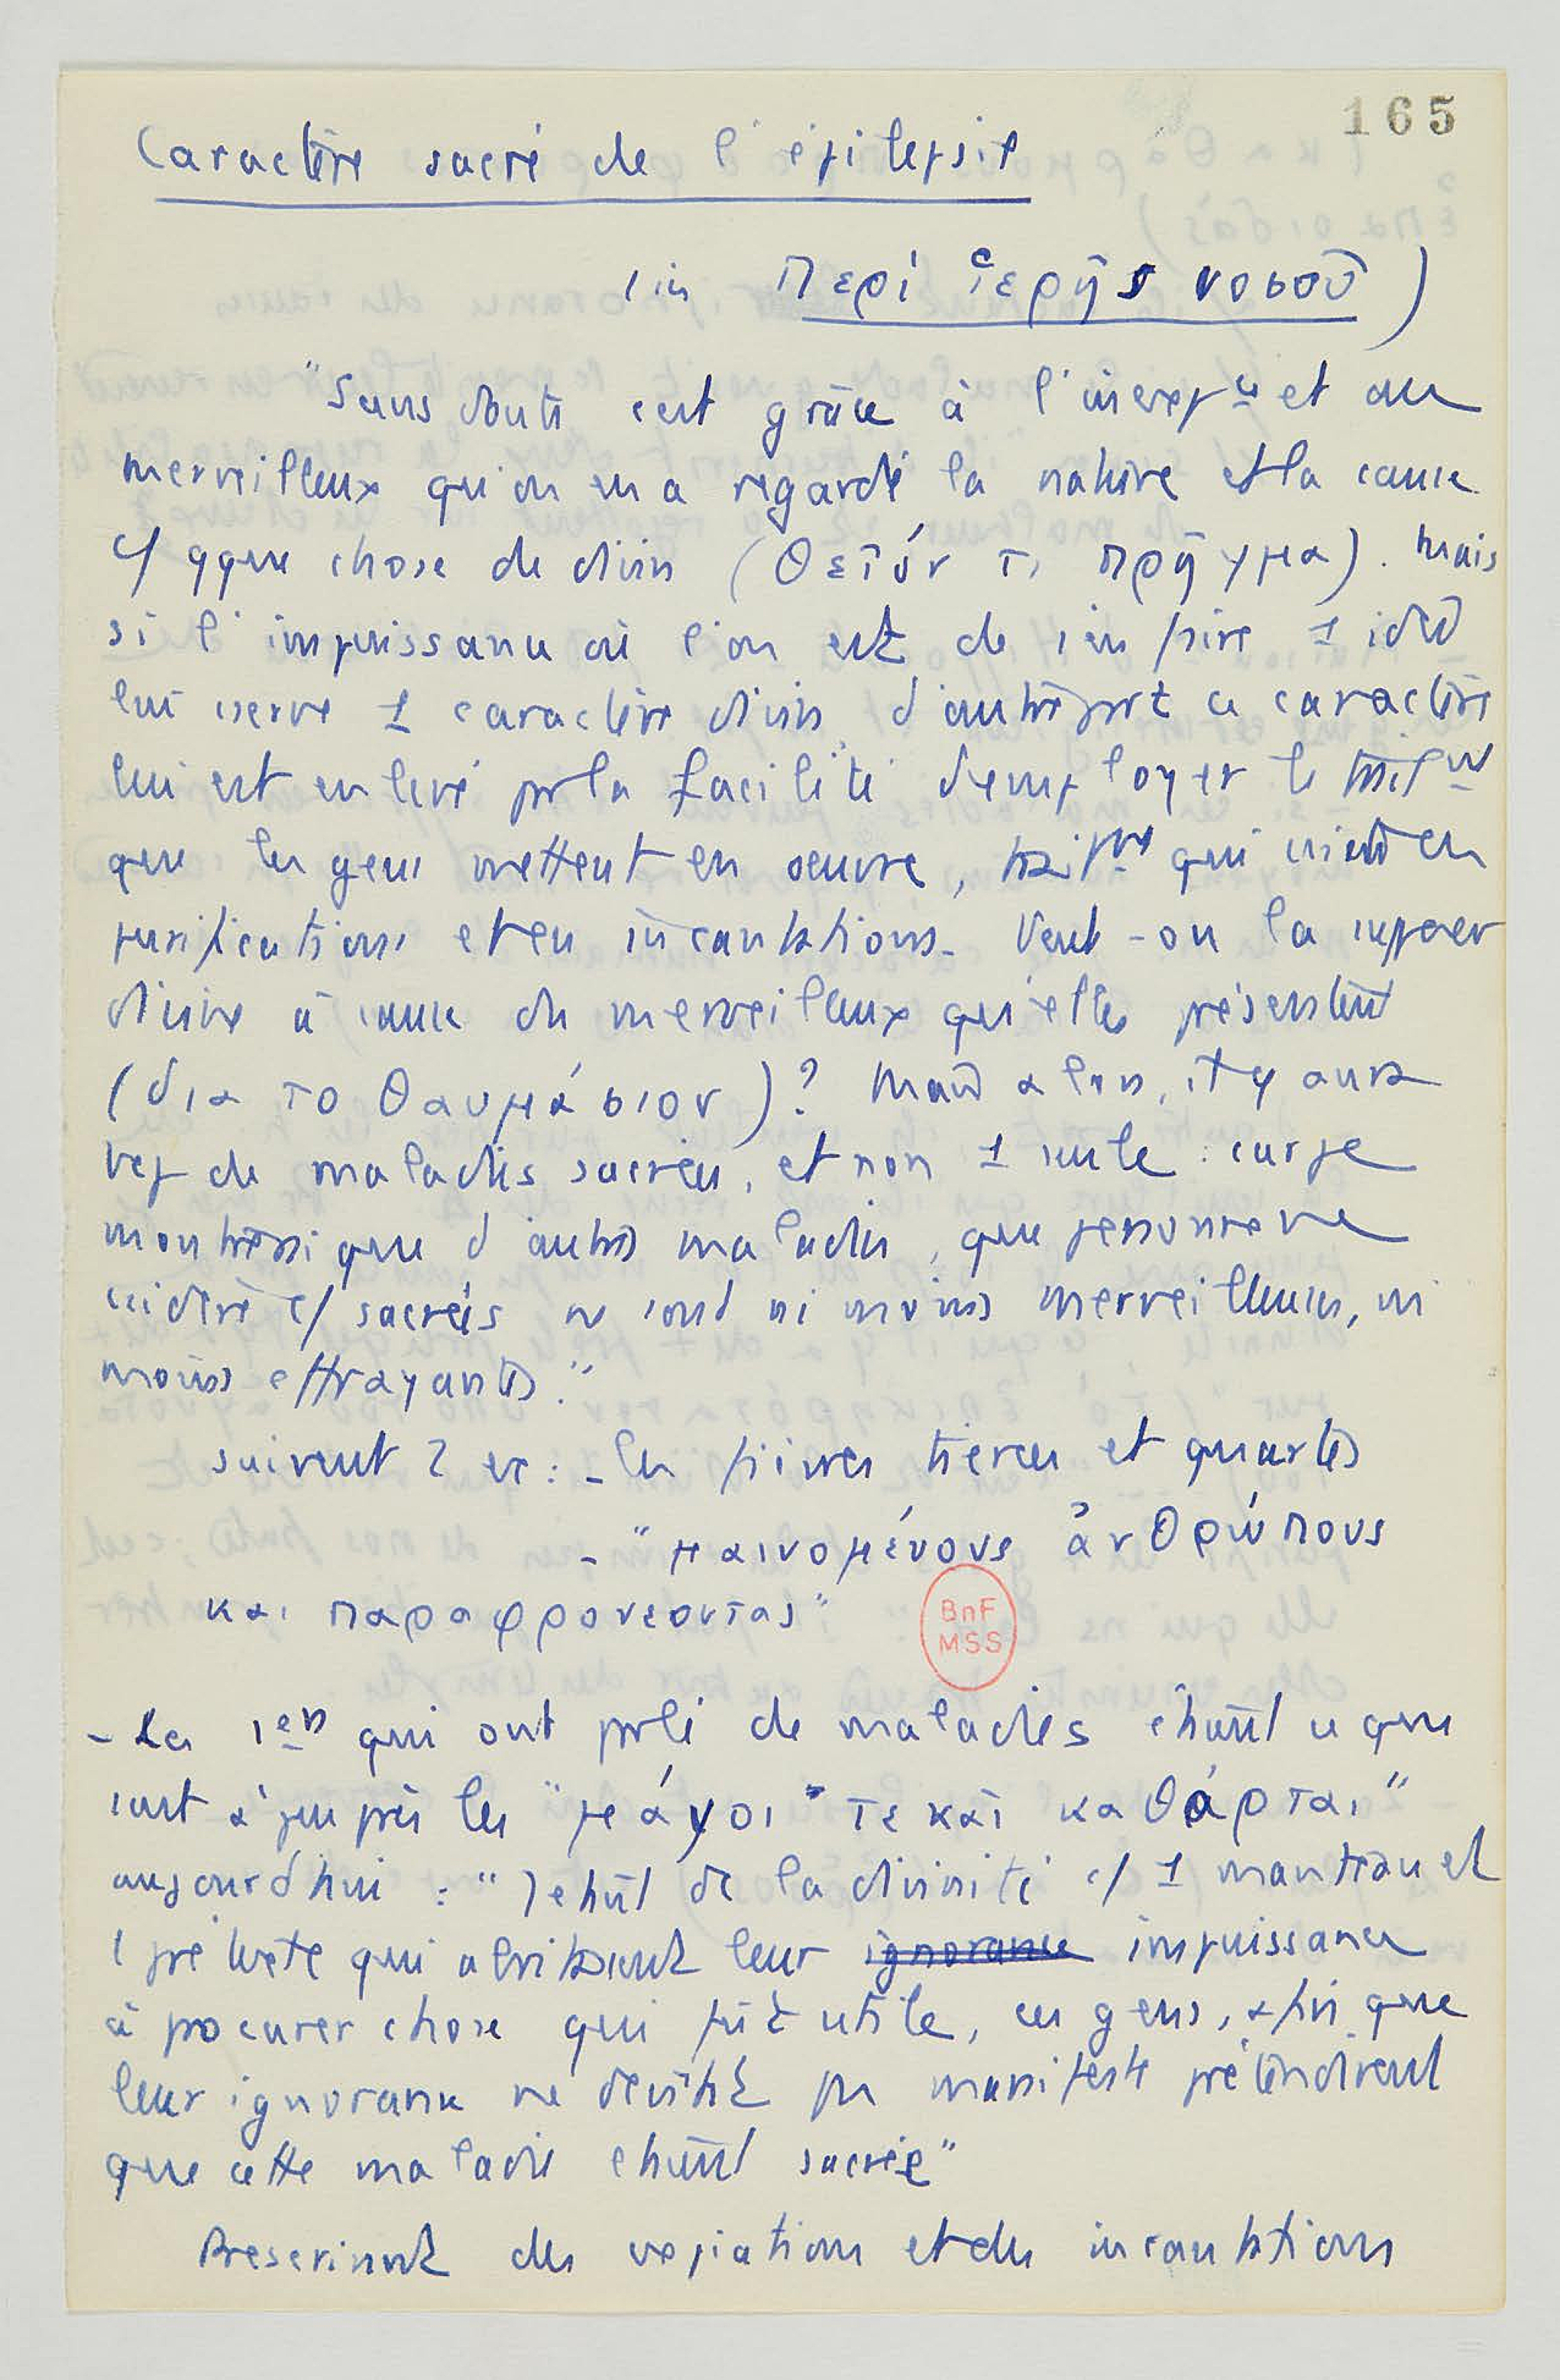 165
Caractère sacré de l'épilepsie
(in Περί ἱερῆς νοσοῦ)
"Sans doute c'est grâce à l'inexp^ce et au
merveilleux qu'on en a regardé la nature et la cause
c/ qque chose de divin (θεῖόν τι πρῆγμα). Mais
si l'impuissance où l'on est de s'en faire 1 idée
lui cserve 1 caractère divin, d'autre part ce caractère
lui est enlevé pr la facilité d'employer le
que les gens mettent en oeuvre, qui csiste en
purifications et en incantations. Veut-on la supposer
divine à cause du merveilleux qu'elle présente
(δια το θαυμάσιον)? Mais alors, il y aura
bcp de maladies sacrées, et non 1 seule : car je
montrerai que d'autres maladies, que personne ne
csidère c/ sacrées ne sont ni moins merveilleuses, ni
moins effrayantes."
suivent 2 ex : - les fièvres tierces et quartes
- "μαινομένους ἀνθρώπους
και παραφρονεοντας"
BnF
MSS
- Les 1ers qui ont parlé de maladies étaient ce que
sont à peu près les "μάγοι τε καὶ καθάρται"
aujourd'hui : " de la divinité c/ 1 manteau et
1 prétexte qui abritassent leur ignorance impuissance
à procurer chose qui fût utile, ces gens, afin que
leur ignorance ne devînt pas manifeste prétendirent
que cette maladie était sacrée"
Prescrivent des expiations et des incantations